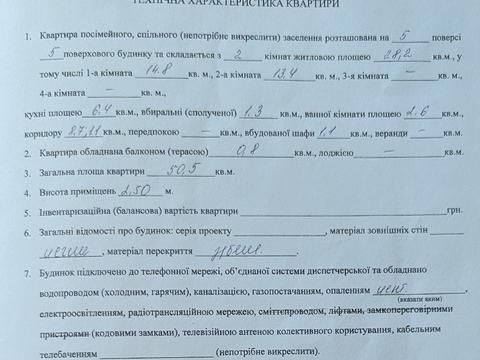 ТЕХНІЧНА ХАРАКТЕРИСТИКА КВАРТИРИ
1. Квартира посімейного, спільного (непотрібне викреслити) заселення розташована на 5 поверсі
5 поверхового будинку та складається з 2 кімнат житловою площею 28,2 кв.м., у
тому числі 1-а кімната 14.8 кв. м., 2-а кімната 13,4 кв. м., 3-я кімната — кв. м.,
4-а кімната — кв. м.,
кухні площею 6.4 кв.м., вбиральні (сполученої) 1.3 кв.м., ванної кімнати площею 2.6 кв.м.,
коридору кв.м., передпокою — кв.м., вбудованої шафи 1,1 кв.м., веранди — кв.м.
2. Квартира обладнана балконом (терасою) 0,8 кв.м., лоджією — кв.м.
3. Загальна площа квартири 50,5 кв.м.
4. Висота приміщень 2,50 м.
5. Інвентаризаційна (балансова) вартість квартири грн.
6. Загальні відомості про будинок: серія проекту , матеріал зовнішніх стін
цегла, матеріал перекриття
7. Будинок підключено до телефонної мережі, об'єднаної системи диспетчерської та обладнано
водопроводом (холодним, гарячим), каналізацією, газопостачанням, опаленням цент.
(вказати яким)
електроосвітленням, радіотрансляційною мережею, сміттєпроводом, ліфтами, замкопереговірними
пристроями (кодовими замками), телевізійною антеною колективного користування, кабельним
телебаченням (непотрібне викреслити).